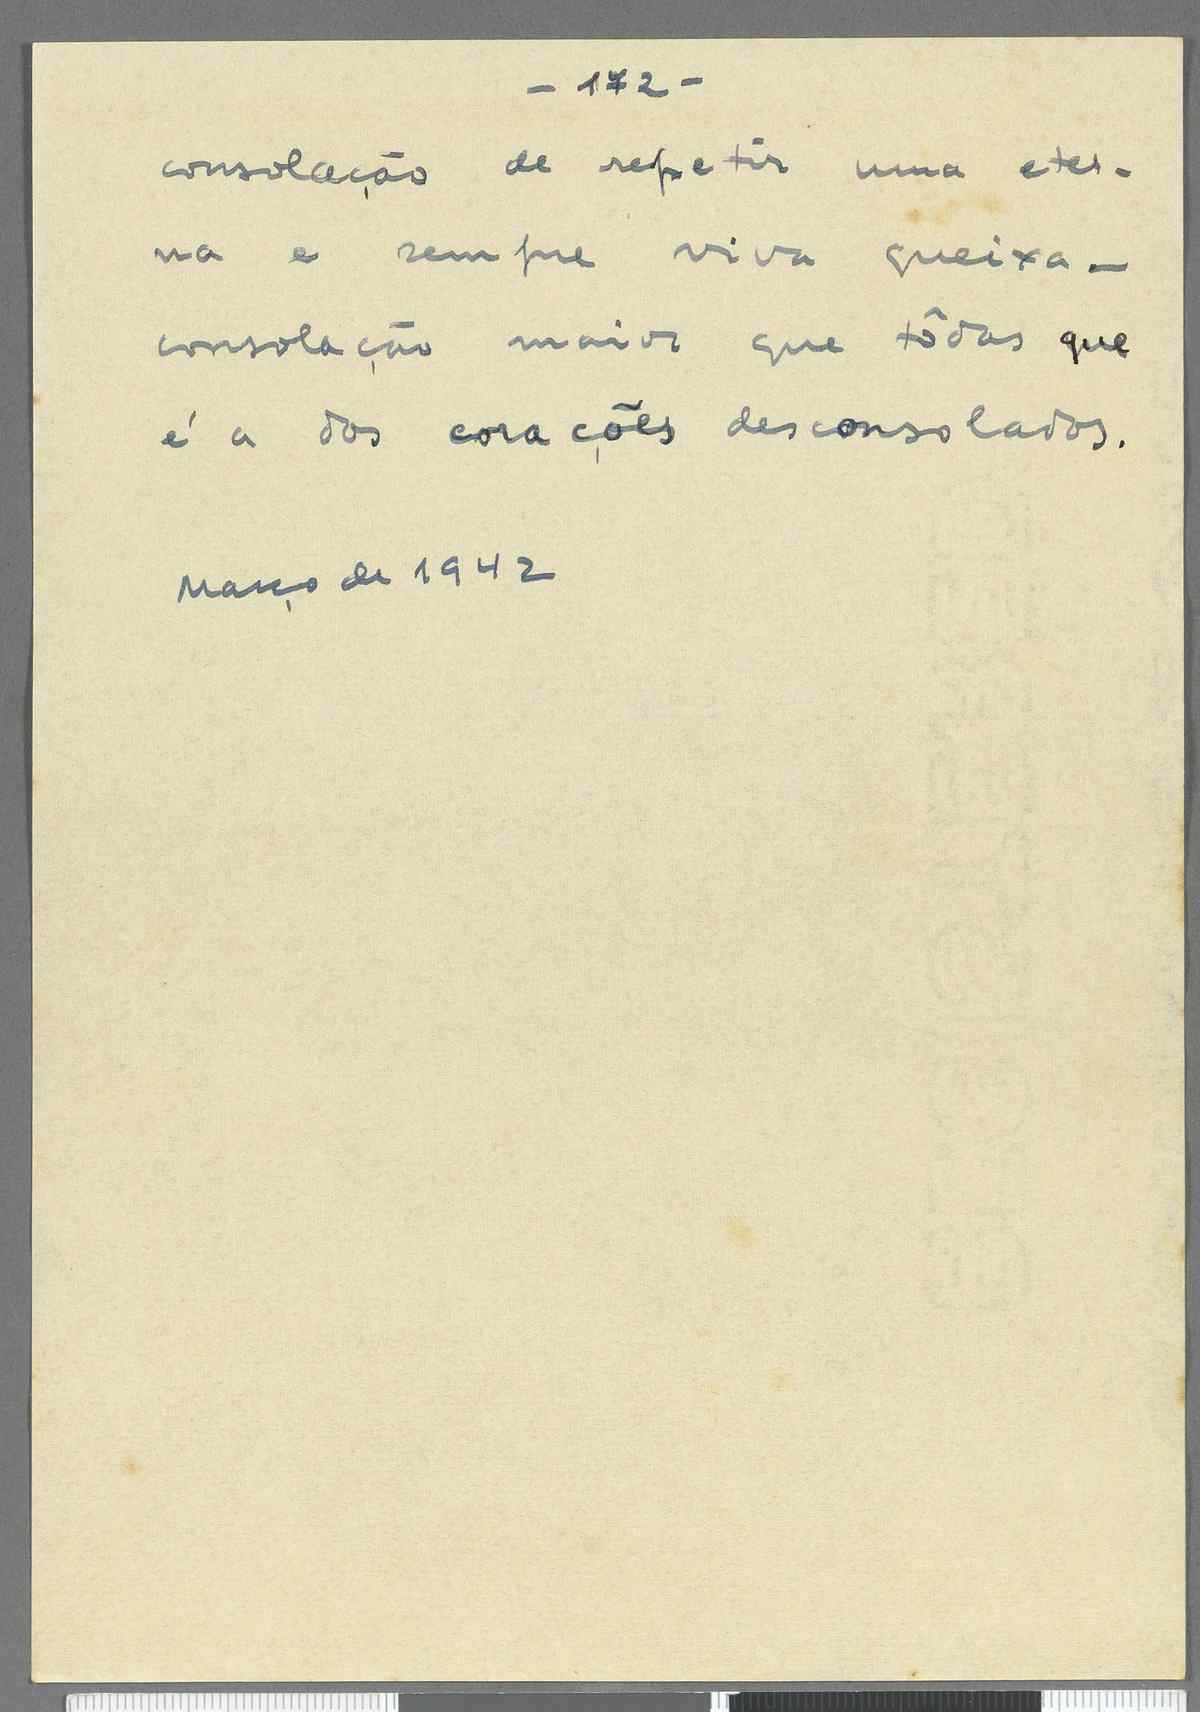 - 172 -
consolação de repetir uma eter-
na e sempre viva queixa -
consolação maior que tôdas que
é a dos corações desconsolados.
Março de 1942